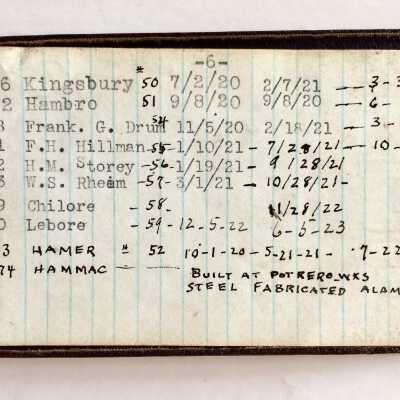 -6-
6 Kingsbury # 50 7/2/20 2/7/21 — 3-3
2 Hambro 51 9/8/20 9/8/20 — 6-
3 Frank. G. Drum 54 11/5/20 2/18/21 — 3-
1 F.H. Hillman 55 1/10/21 - 7/28/21 - 10-
2 H.M. Storey -56- 1/19/21 - 9/28/21
3 W.S. Rheim -57- 3/1/21 - 10/28/21-
9 Chilore -58- 11/28/22
0 Lebore -59- 12-5-22 6-5-23
3 HAMER " 52 10-1-20 - 5-21-21- 7-22
74 HAMMAC — — BUILT AT POTRERO WKS
STEEL FABRICATED ALAM